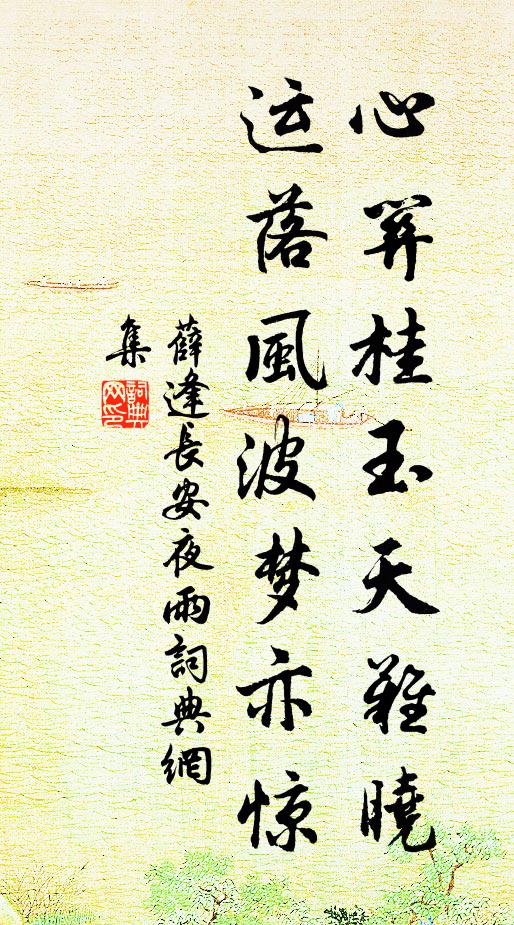 心關桂玉天難曉
运落風波梦亦惊
薛逢長安夜雨詞典網
集
詞典網印